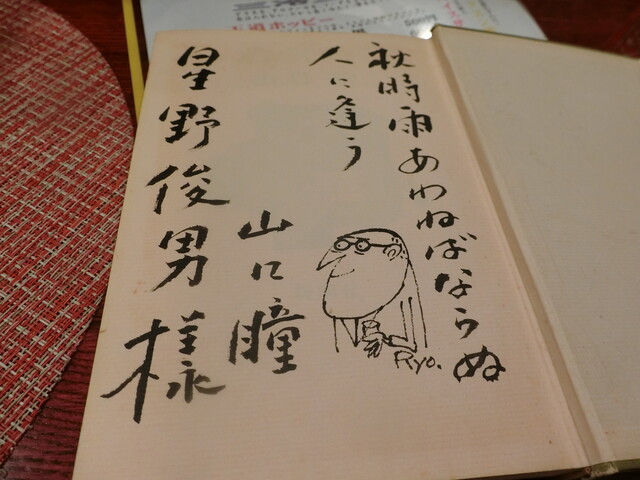 秋時雨あわねばならぬ
人に逢う
山口瞳
星野俊男様
Ryo.